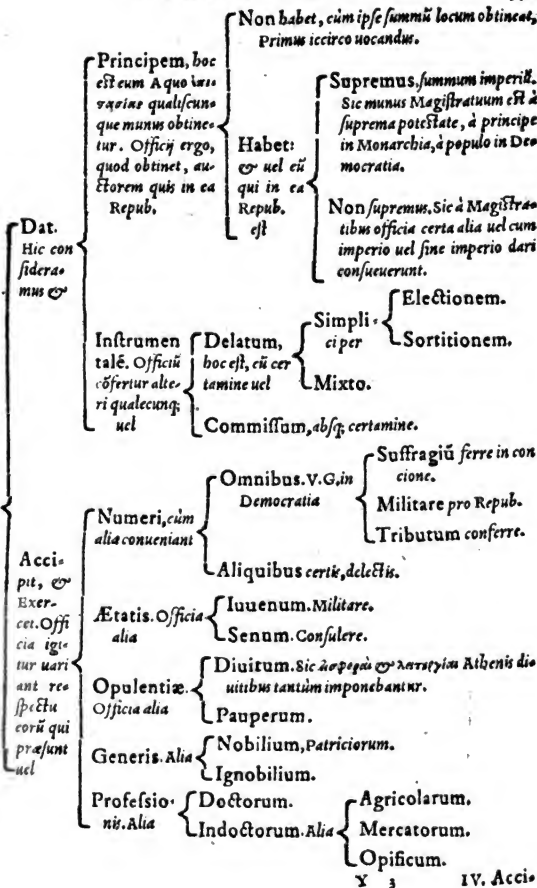 Non habet, cùm ipſe ſummũ locum obtineat,
Primus iccirco uocandus.
Principem, hoc
eſt eum A quo
qualiſcun
que munus obtine-
tur. Officij ergo,
quod obtinet, au-
ctorem quis in ea
Repub.
Habet:
& uel eũ
qui in ea
Repub.
eſt
Supremus. ſummum imperiũ.
Sic munus Magiſtratuum eſt à
ſuprema poteſtate, à principe
in Monarchia, à populo in De-
mocratia.
Non ſupremus. Sic à Magiſtra-
tibus officia certa alia uel cum
imperio uel ſine imperio dari
conſueuerunt.
Dat.
Hic con
ſidera-
mus &
Inſtrumen
talẽ. Officiũ
cõfertur alte-
ri qualecunq;
uel
Delatum,
hoc eſt, cũ cer
tamine uel
Simpli-
ci per
Electionem.
Sortitionem.
Mixto.
Commiſſum, abſq; certamine.
Acci-
pit, &
Exer-
cet. Offi
cia igi-
tur uari
ant re-
ſpectu
eorũ qui
præſunt
uel
Numeri, cùm
alia conueniant
Omnibus. V.G. in
Democratia
Suffragiũ ferre in con
cione.
Militare pro Repub.
Tributum conferre.
Aliquibus certis, delectis.
Ætatis. Officia
alia
Iuuenum. Militare.
Senum. Conſulere.
Opulentiæ.
Officia alia
Diuitum. Sic & Athenis di-
uitibus tantùm imponebantur.
Pauperum.
Generis. Alia
Nobilium, Patriciorum.
Ignobilium.
Profeſsio-
nis. Alia
Doctorum.
Indoctorum. Alia
Agricolarum.
Mercatorum.
Opificum.
Y 3 IV. Acci-